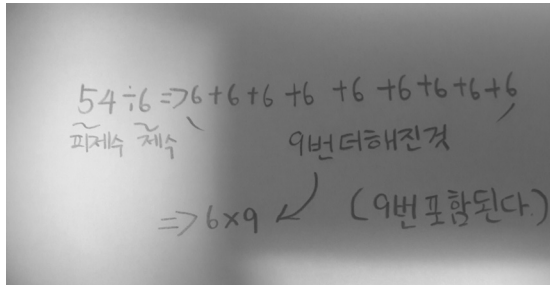 54÷6=>6+6+6+6+6+6+6+6+6
피제수 제수 9번 더해진것
=>6×9 (9번 포함된다)